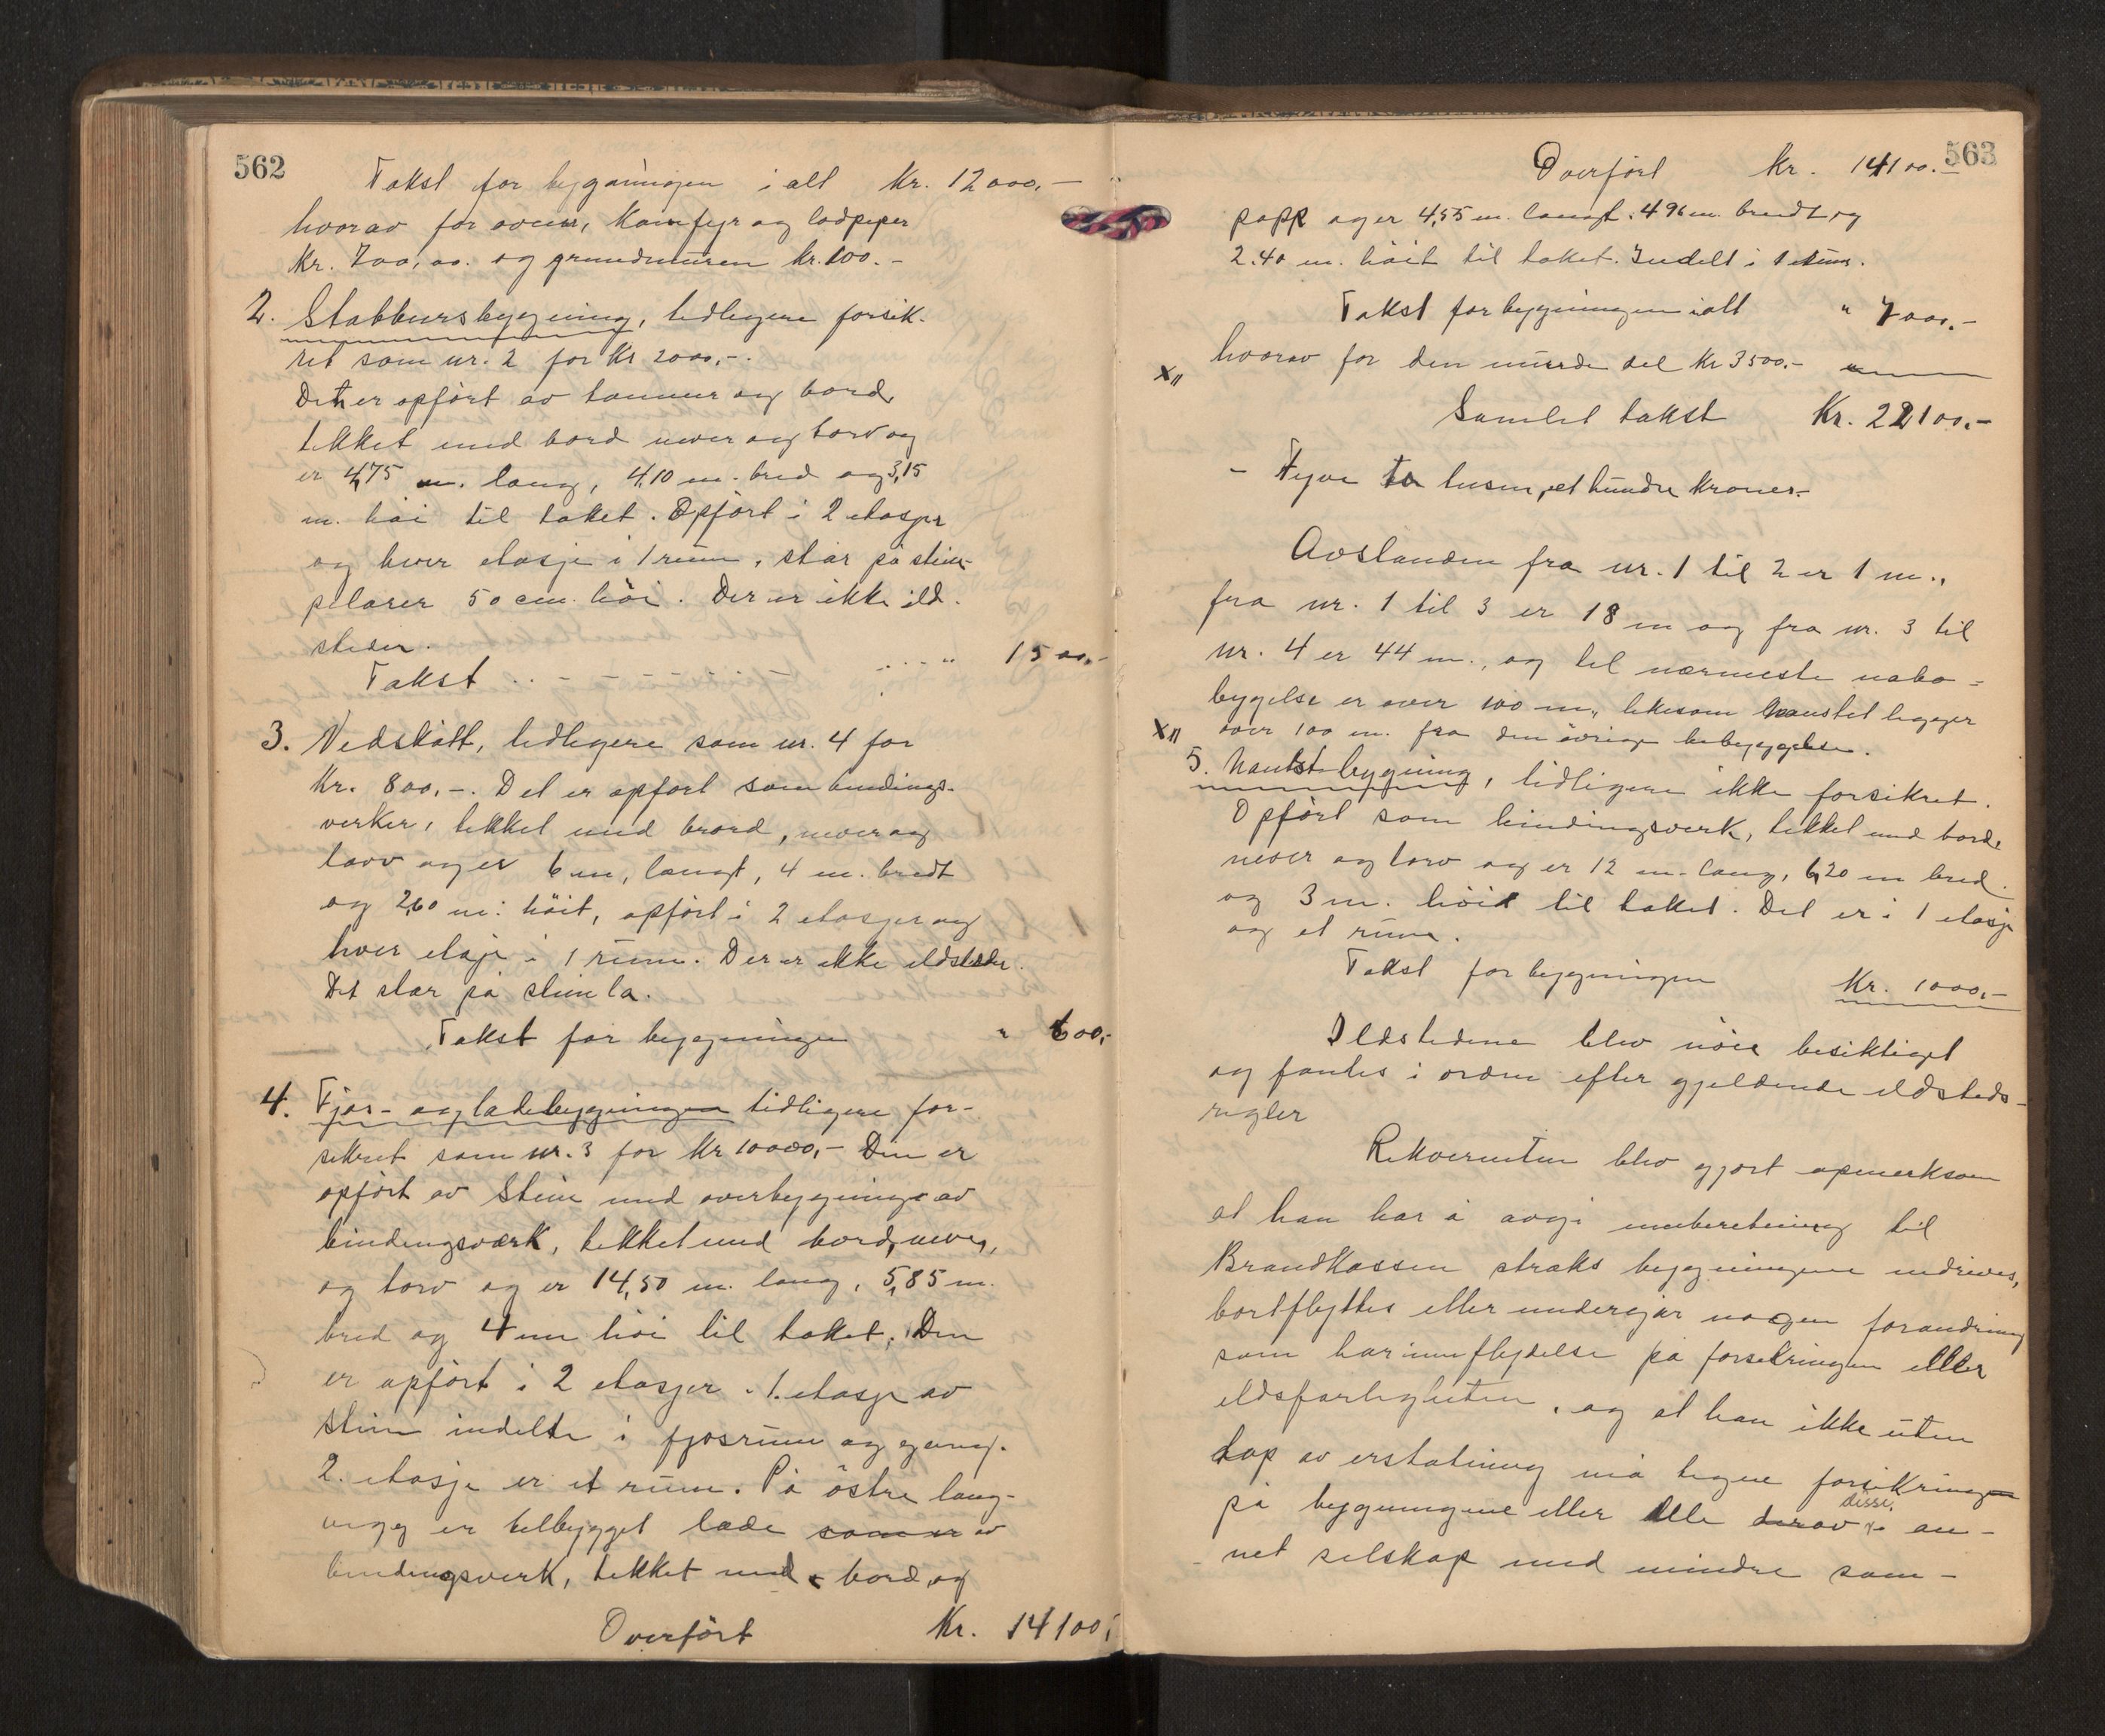 562
Takst for bygningen i alt Kr. 12000,-
hvorav for ovner, Komfyr og lodpiper
Kr. 700,00. og grundmuren kr. 100.-
2. Stabbursbygning, tidligere forsik-
ret som nr. 2 for Kr 2000,-.
Den er opført av tømmer og bord,
tekket med bord never og torv og
er 4,75 m. lang, 4,10 m. bred og 3,15
m. høi til taket. Opført i 2 etasjer
og hver etasje i 1 rum, står på stein-
pelarer 50 cm. høi. Der er ikke ild-
steder.
Takst " 1500,-
3. Vedskått, tidligere som nr. 4 for
Kr. 800,-. Det er opført som bindings-
verker, tekket med brord, never og
torv og er 6 m, langt, 4 m. bredt
og 2,60 m. høit, opført i 2 etasjer og
hver etasje i 1 rum. Der er ikke ildsteder.
Det står på steinla.
Takst for bygningen " 600,-
4. Fjøs- og ladebygningen tidligere for-
sikret som nr. 3 for Kr 10000,- Den er
opført av Stein med overbygning av
bindingsværk, tekket med bord, never,
og torv og er 14,50 m. lang, 5,85 m.
bred og 4 m høi til taket. Den
er opført i 2 etasjer. 1. etasje av
Stein indelte i fjøsrum og gang.
2. etasje er et rum. På østre lang-
vegg er tilbygget lade som er av
bindingsverk, tekket med bord, og
Overført Kr. 14100,-
563
Overført Kr. 14100.-
papp og er 4,55 m. langt. 4.96 m. bredt og
2.40 m. høit til taket. Indelt i 1 rum.
Takst for bygningen ialt " 7000.-
X॥ hvorav for den murede del Kr 3500.-
Samlet takst Kr. 22100.-
- Tyve to tusen, et hundre kroner.-
Avstanden fra nr. 1 til 2 er 1 m.,
fra nr. 1 til 3 er 18 m og fra nr. 3 til
nr. 4 er 44 m., og til nærmeste nabo-
bygelse er over 100 m., likesom naustet ligger
X॥ over 100 m. fra den øvrige bebyggelse.
5. Naustbygning, tidligere ikke forsikret.
Opført som bindingsverk, tekket med bord,
never og torv og er 12 m. lang, 6,20 m bred.
og 3 m. høi til taket. Det er i 1 etasje
og et rum.
Takst for bygningen Kr. 1000,-
Ildstedene blev nøie besiktiget
og fantes i orden efter gjeldende ildsteds-
regler
Rekvirenten blev gjort opmerksom
at han har å avgi innberetning til
Brandkassen straks bygningene nedrives,
bortflyttes eller undergår nogen forandring
som har innflydelse på forsikringen eller
ildsfarligheten, og at han ikke uten
tap av erstatning må tegne forsikringen
på bygningene eller dele derav disse i an-
net selskap med mindre sam-